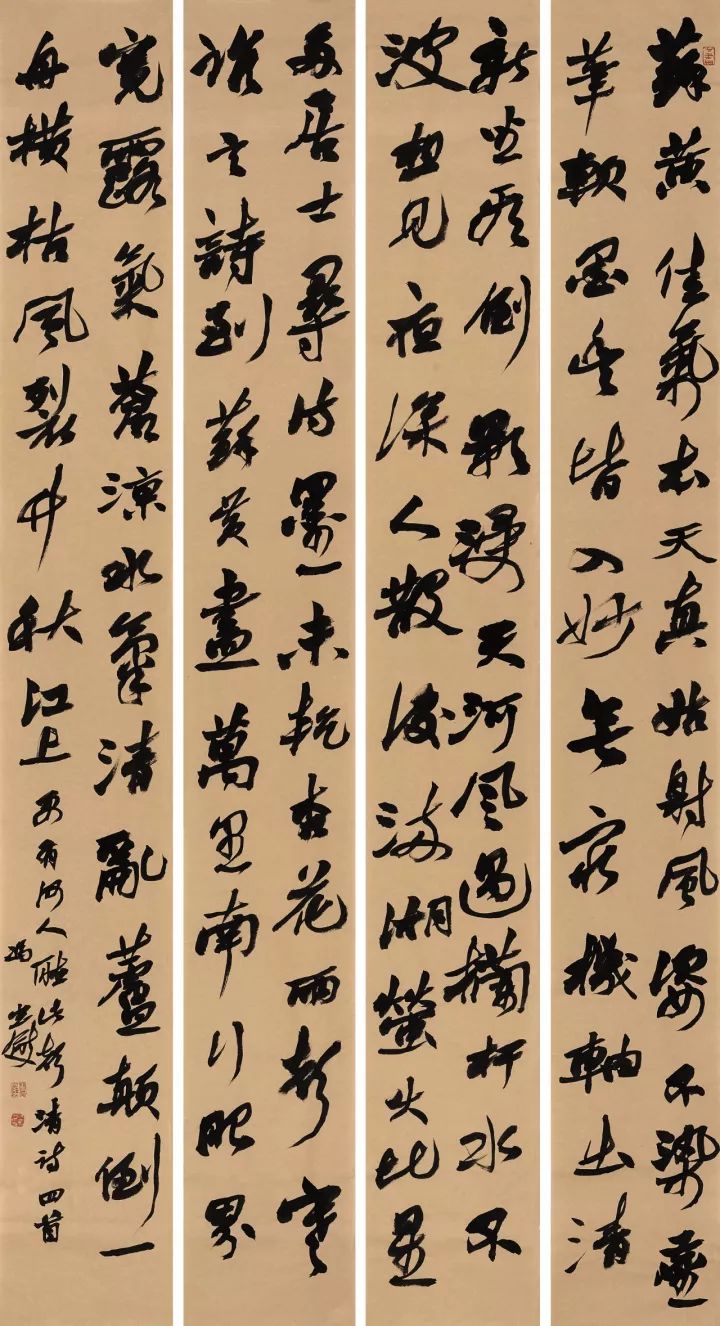 蘇黃佳氣本天真姑射風姿不染塵
筆軟墨豐皆入妙無窮機軸出清
新坐看倒影浸天河風過欄杆水不
波想見夜深人散後滿湖螢火比星
多居士尋詩墨未乾杏花雨聲寒
誰言詩到蘇黃盡萬里南行眼界
寬露氣蒼涼水氣清亂蘆顛倒一
舟橫枯風裂竹秋江上更有何人聽此聲 清詩四首
馮